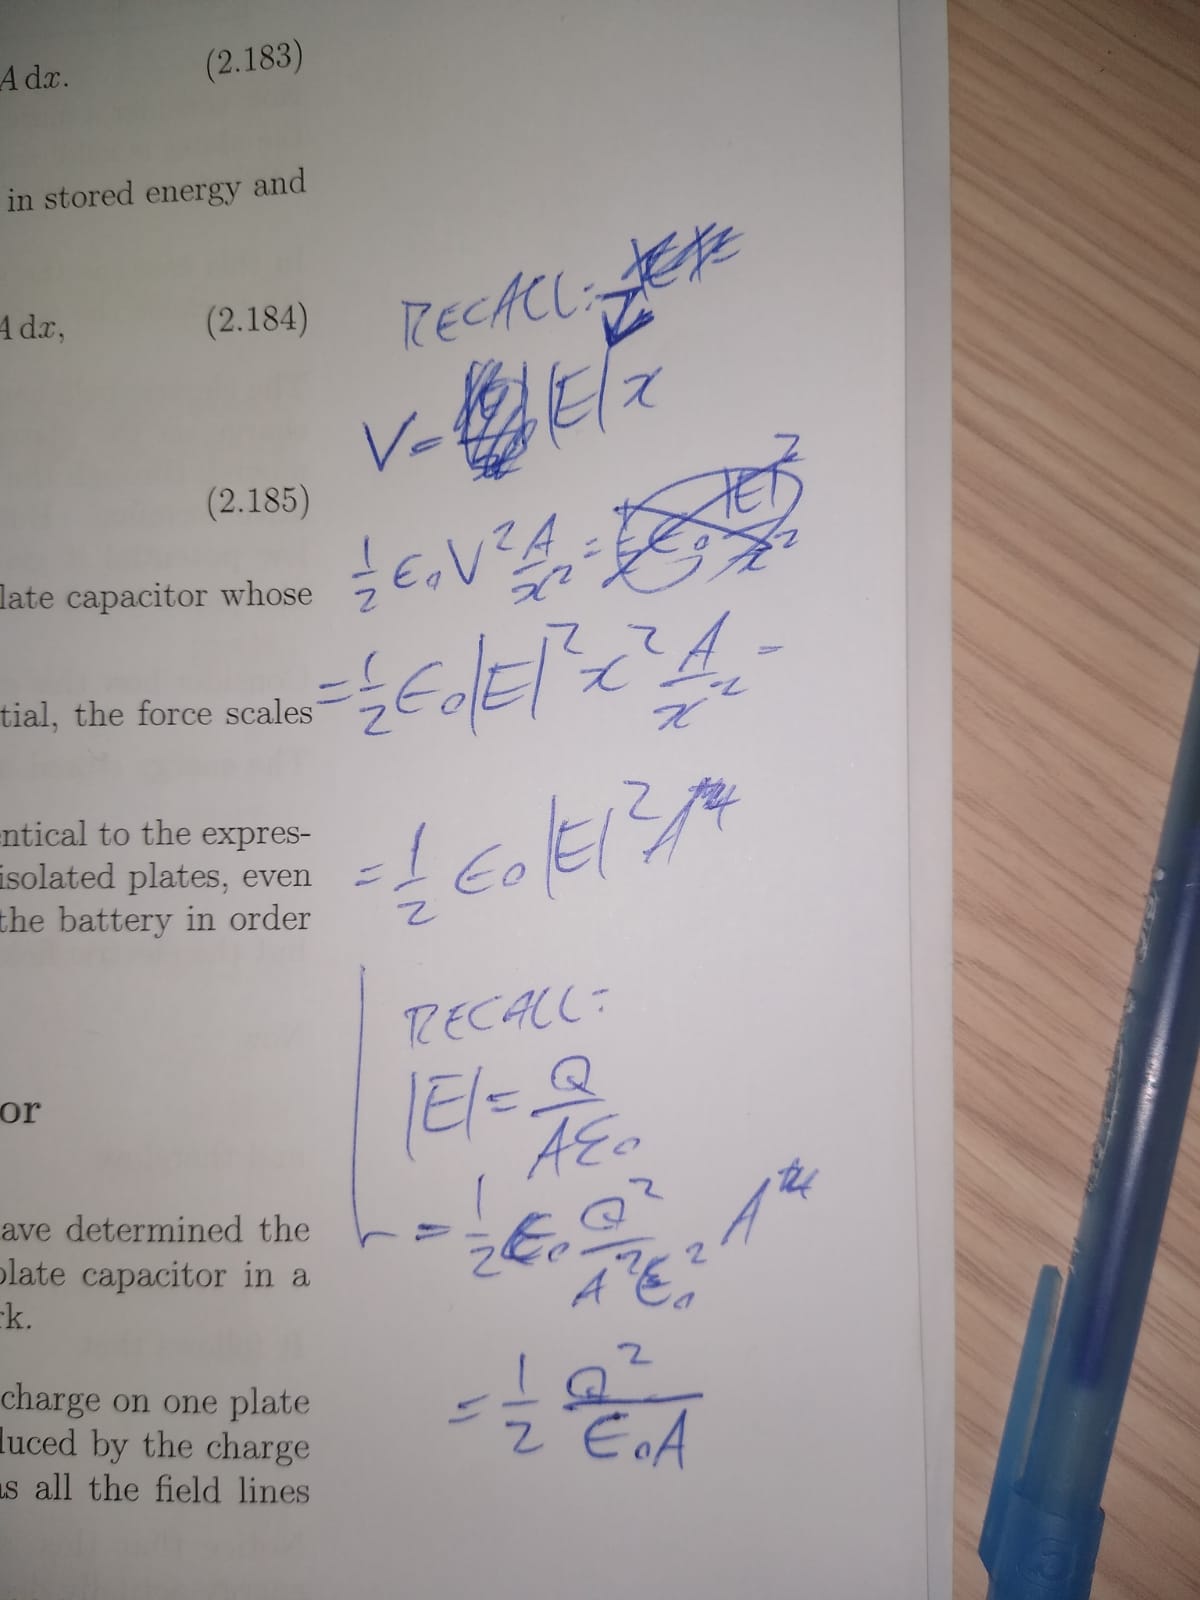 A dx. (2.183)
in stored energy and
A dx, (2.184)
(2.185)
late capacitor whose
tial, the force scales
entical to the expres-
isolated plates, even
the battery in order
or
ave determined the
plate capacitor in a
rk.
charge on one plate
duced by the charge
as all the field lines
RECALL:
V = |E| x
½ ε₀ V² A/x² =
= ½ ε₀ |E|² x² A/x² =
= ½ ε₀ |E|² A
RECALL:
|E| = Q/(Aε₀)
= ½ ε₀ Q²/(A²ε₀²) A
= ½ Q²/(ε₀A)